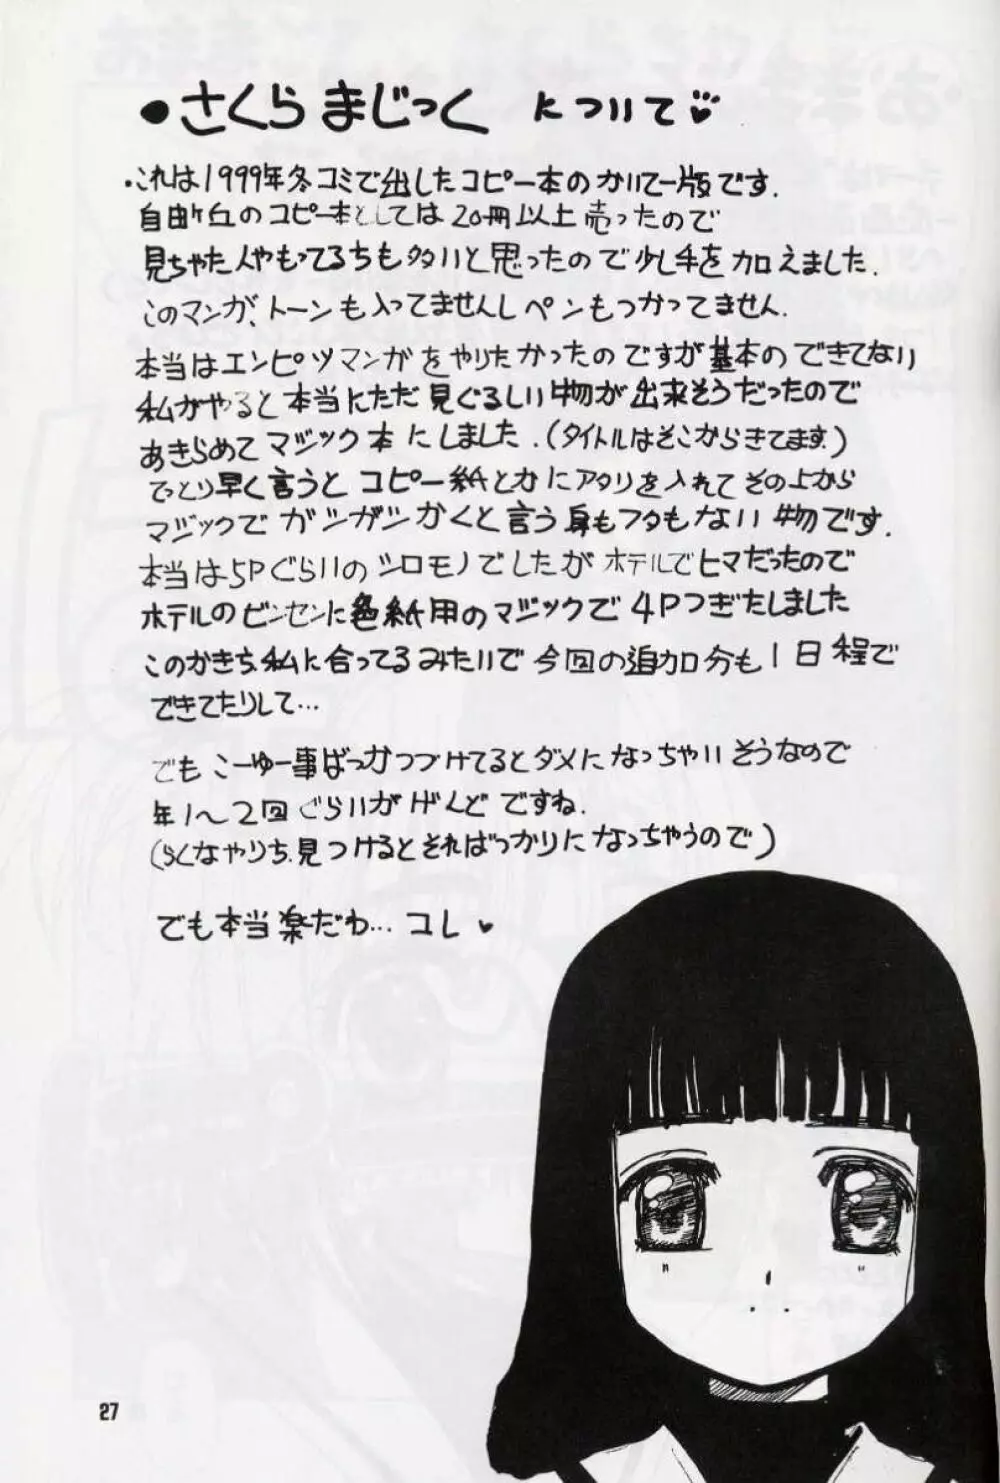 ●さくら まじっく について
・これは1999年冬コミで出したコピー本のかいてー版です.
自由ケ丘のコピー本としては20冊以上売ったので
見ちゃた人やもってるちも多いと思ったので少し手を加えました.
このマンガ、トーンも入ってませんしペンもつかってません.
本当はエンピツマンガをやりたかったのですが基本のできてない
私がやると本当にただ見ぐるしい物が出来そうだったので
あきらめてマジック本にしました.(タイトルはそこからきてます)
てっとり早く言うとコピー紙とかにアタリを入れてその上から
マジックでガシガシかくと言う身もフタもない物です.
本当は5Pぐらいのシロモノでしたがホテルでヒマだったので
ホテルのビンセンに色紙用のマジックで4Pつぎたしました
このかきち私に合ってるみたいで今回の追加分も1日程で
できてたりして…
でもこーゆー事ばっかつづけてるとダメになっちゃいそうなので
年1〜2回ぐらいがげんどですね.
(らくなやりち見つけるとそればっかりになっちゃうので)
でも本当楽だわ…コレ
27